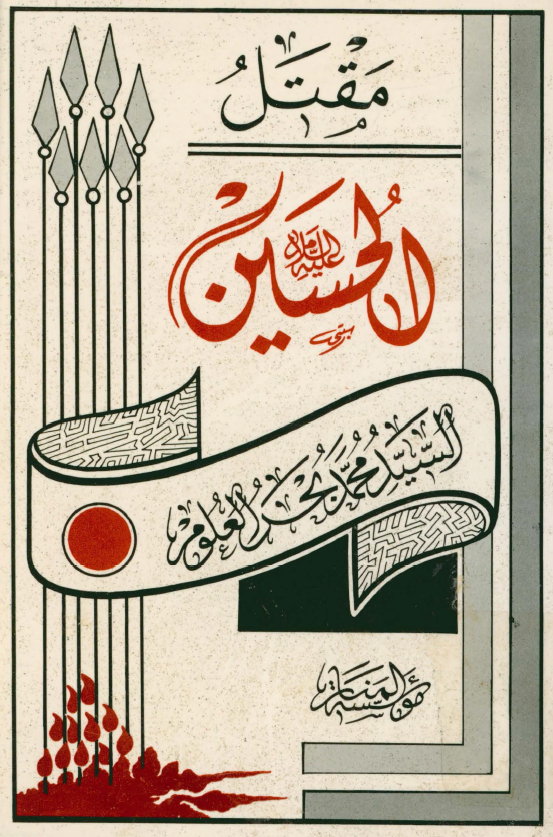 مَقْتَلُ
الحُسَين
عليه السلام
السَّيِّد مُحمَّد بَحْر العُلوم
مؤسسة المنار